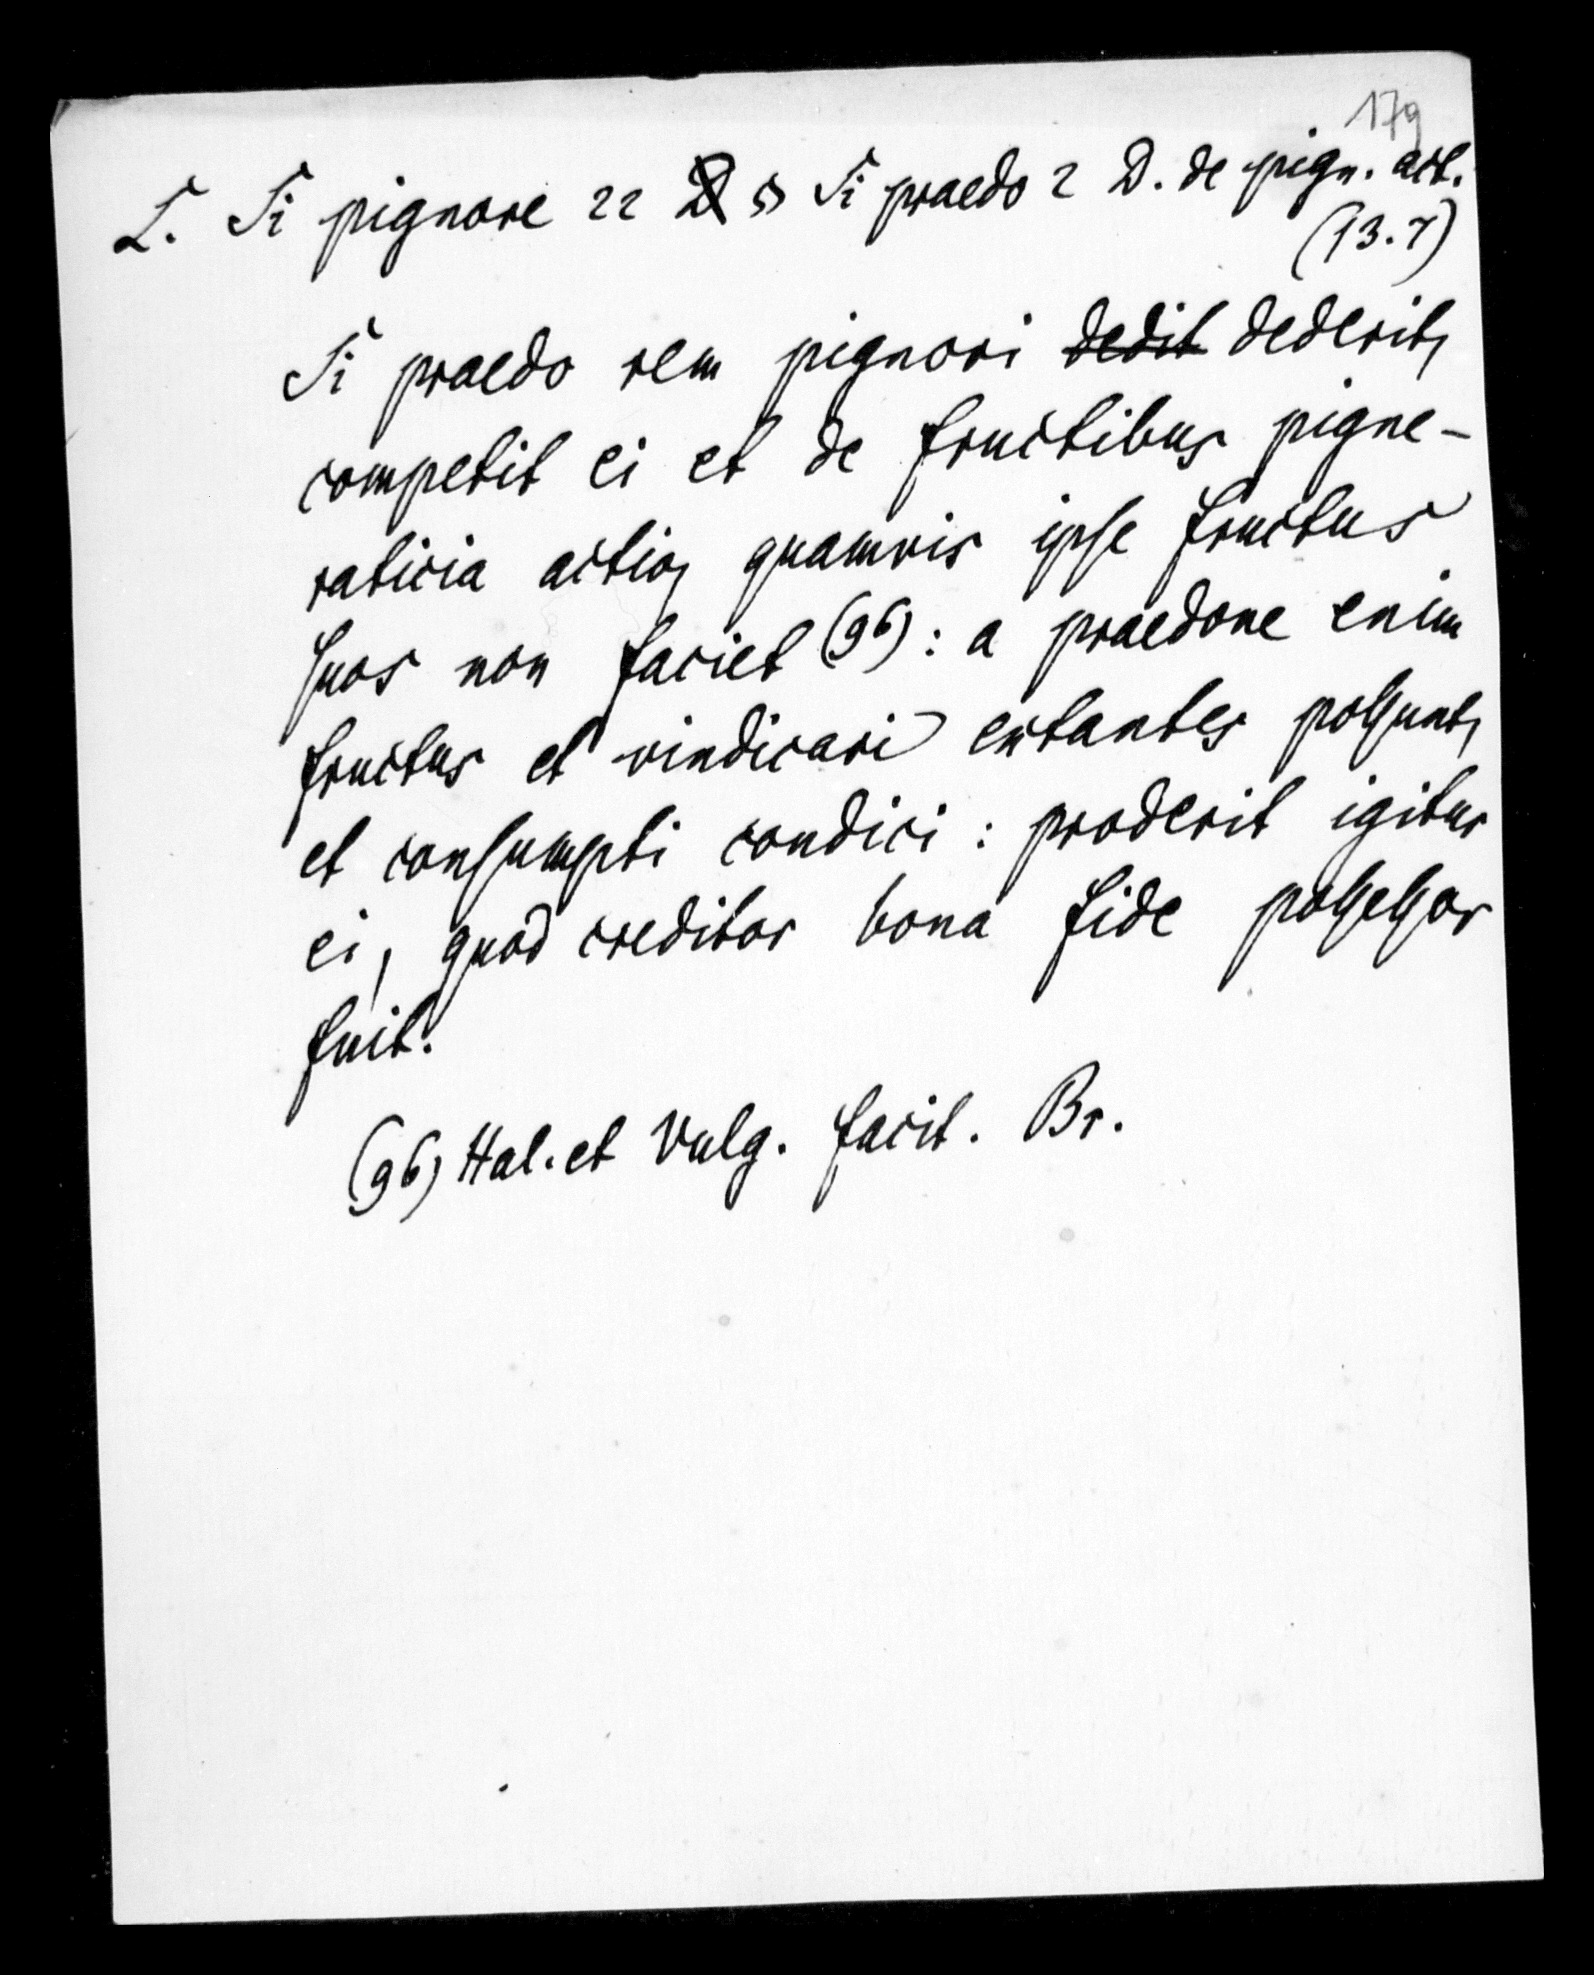 179
L. Si pignore 22 § Si praedo 2 D. de pign. act.
(13.7)
Si praedo rem pignori dedit dederit,
competit ei et de fructibus pigne-
raticia actio, quamvis ipse fructus
suos non faciet (96): a praedone enim
fructus et vindicari extantes possunt,
et consumpti condici: proderit igitur
ei, quod creditor bona fide possessor
fuit.
(96) Hal. et Vulg. facit. Br.